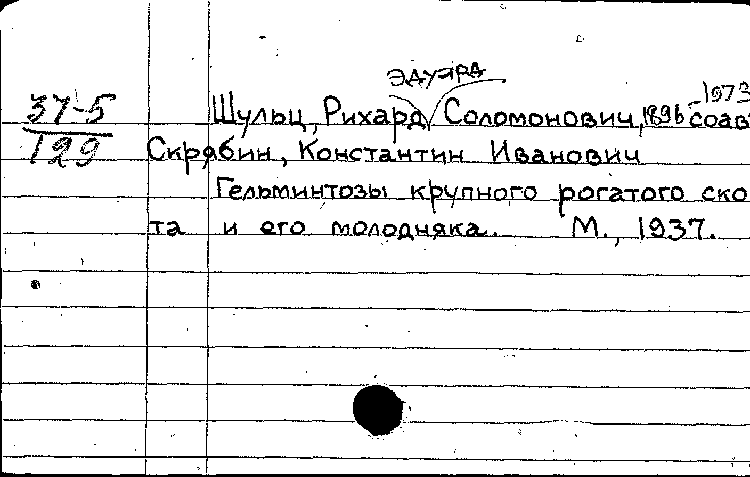 Эдуард
37-5
129
Шульц, Рихард Соломонович, 1896-1973 соав
Скрябин, Константин Иванович
Гельминтозы крупного рогатого ско
та и его молодняка. М., 1937.